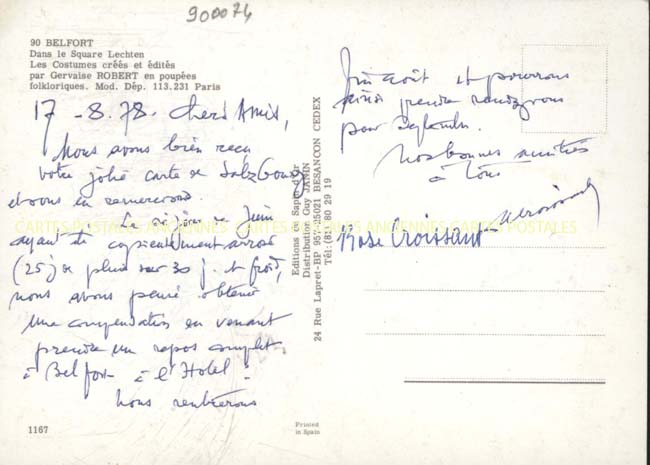 900074
90 BELFORT
Dans le Square Lechten
Les Costumes créés et édités
par Gervaise ROBERT en poupées
folkloriques. Mod. Dép. 113.231 Paris
17 - 8. 78. chers Amis,
Nous avons bien reçu
votre jolie carte de Salzbourg
et vous en remercions.
Le séjour de Juin
ayant été copieusement arrosé
(25 j de pluie sur 30 j. et froid,
nous avons pensé obtenir
une compensation en venant
prendre un repos complet
à Belfort à l'Hotel.
Nous rentrerons
fin août et pourrons
ainsi prendre rendez vous
pour septembre.
Nos bonnes amitiés
à Tous
Rose Croissant
CARTES POSTALES ANCIENNES CARTES POSTALES ANCIENNES CARTES POSTALES
Editions Sapie d'or
Distribution Guy JAMIN
24 Rue Lapret-BP 957-25021 BESANCON CEDEX
Tél:(81) 80 29 19
1167
Printed
in Spain